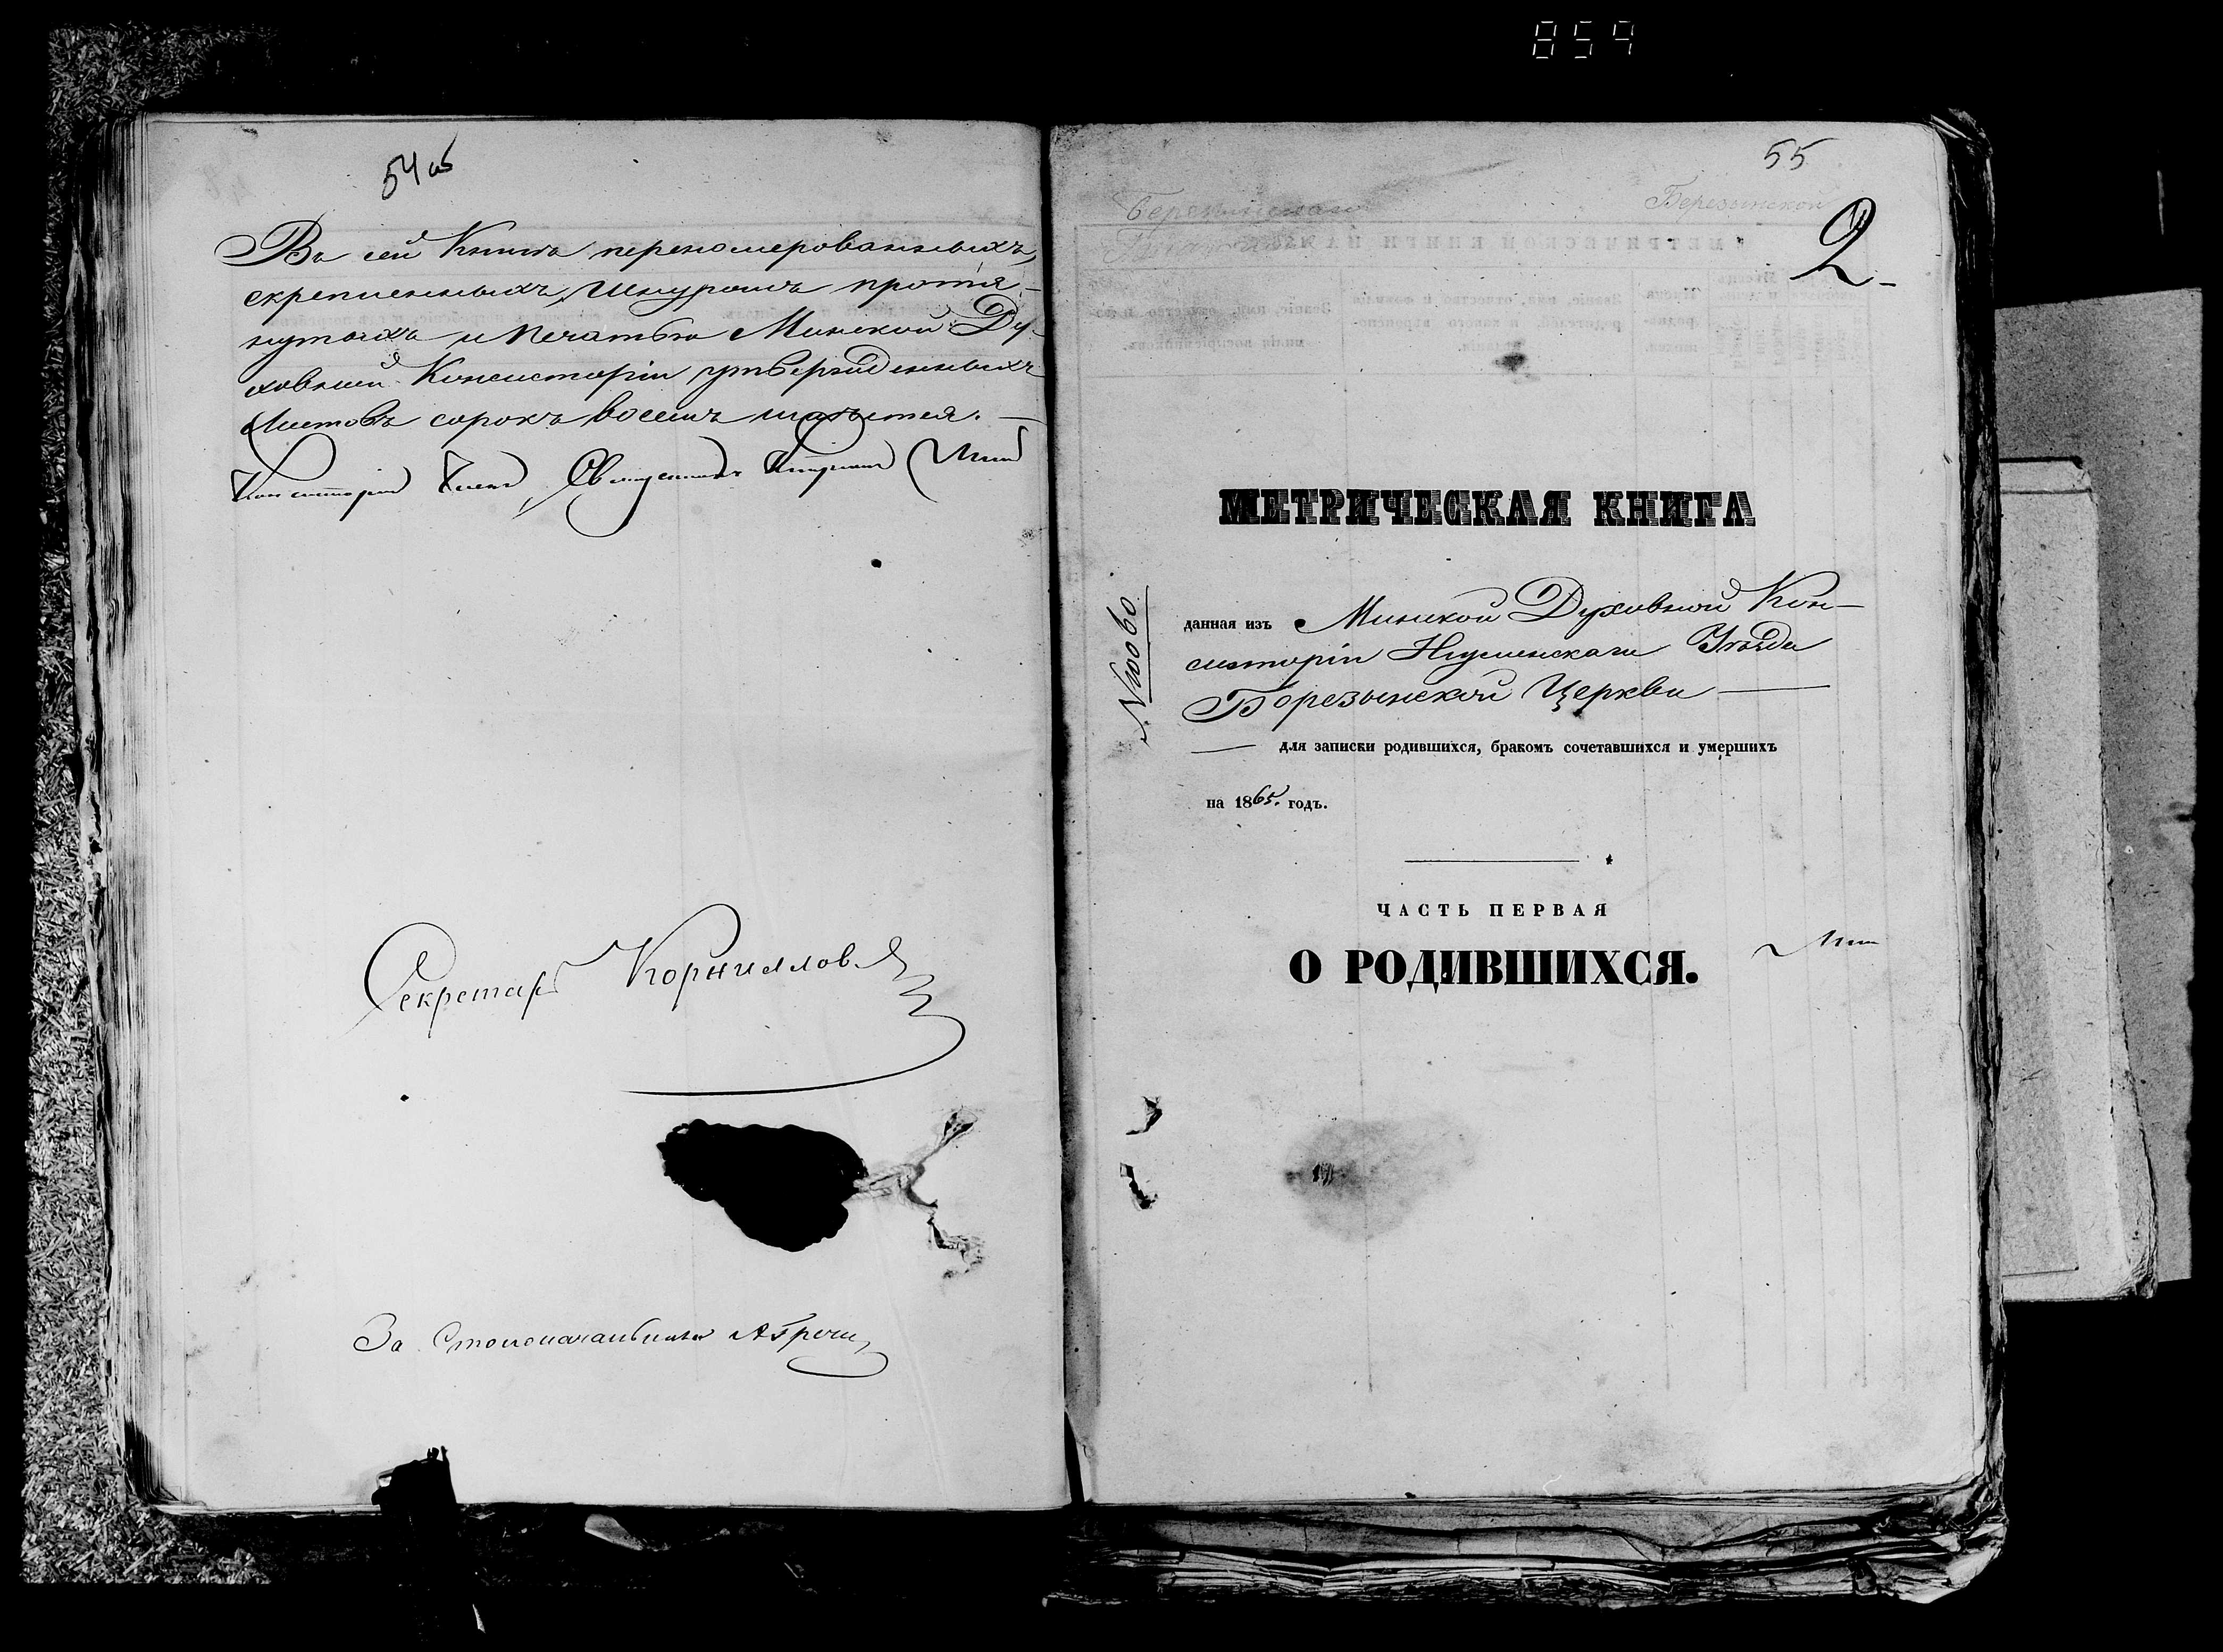 859
54 об
Въ сей Книгѣ перенумерованныхъ,
скрепленныхъ, шнуромъ протя-
нутыхъ и печатью Минской Ду-
ховной Консисторіи утвержденныхъ
листовъ сорокъ восемь имѣется.
Консисторіи Членъ, Священникъ
Секретарь Корниловъ
За Столоначальника
55
Березынской
2
МЕТРИЧЕСКАЯ КНИГА
данная изъ Минской Духовной Кон-
систоріи Игуменскаго Уѣзда
Березынской Церкви
для записки родившихся, бракомъ сочетавшихся и умершихъ
на 1865. годъ.
ЧАСТЬ ПЕРВАЯ
О РОДИВШИХСЯ.